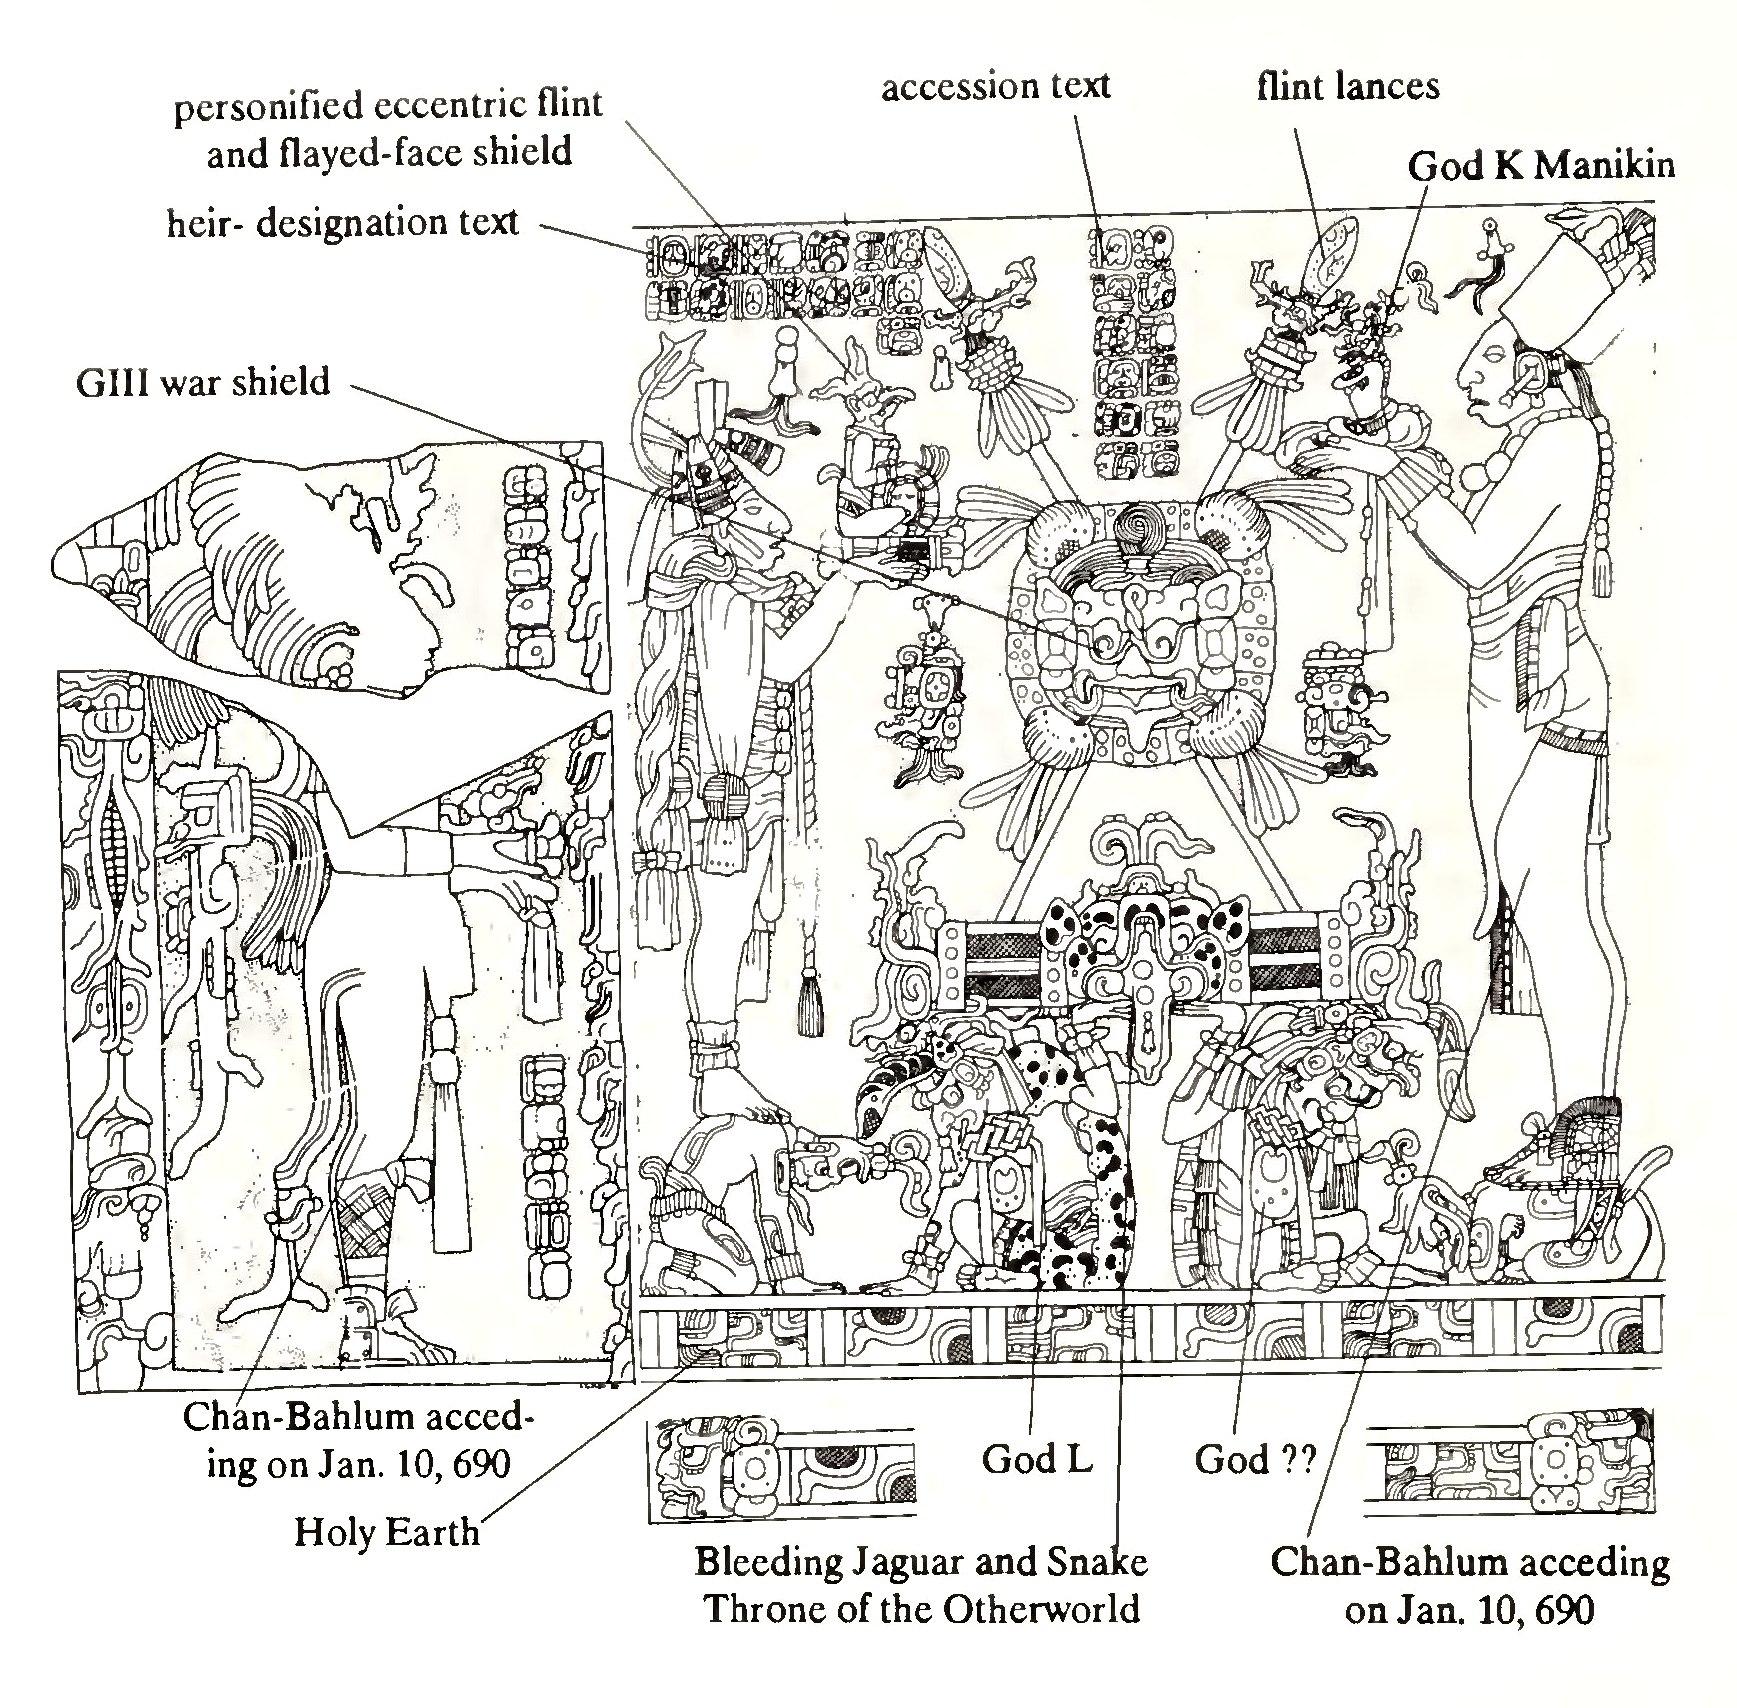 personified eccentric flint
and flayed-face shield
heir- designation text
accession text
flint lances
God K Manikin
GIII war shield
Chan-Bahlum acced-
ing on Jan. 10, 690
Holy Earth
God L
God ??
Bleeding Jaguar and Snake
Throne of the Otherworld
Chan-Bahlum acceding
on Jan. 10, 690